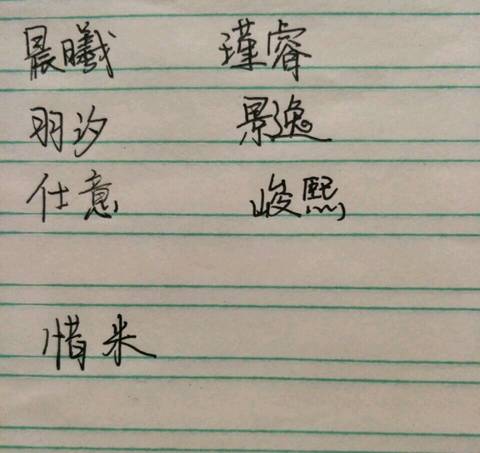 晨曦 瑾睿
羽汐 景逸
仕意 峻熙
惜米